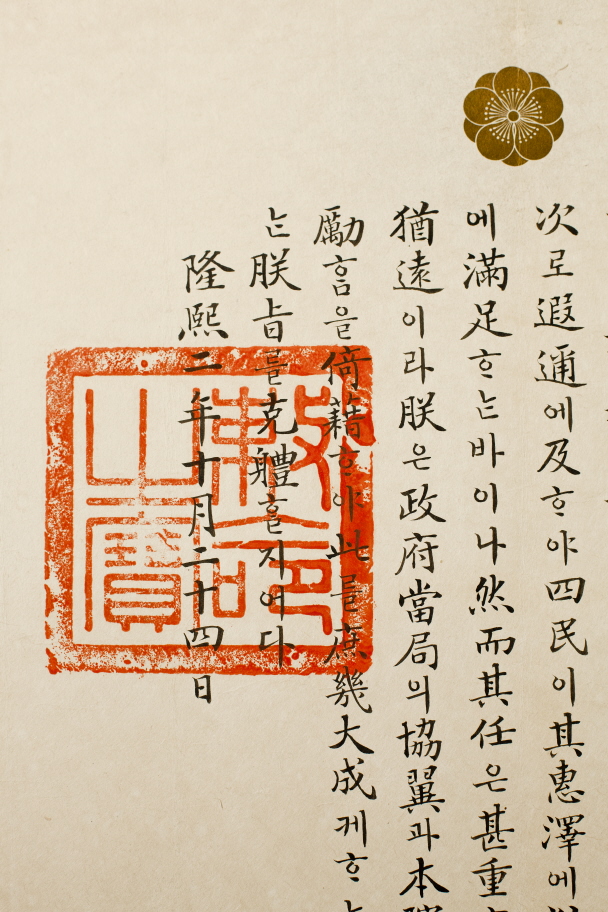 次로遐邇에及ᄒᆞ야四民이其惠澤에
에滿足ᄒᆞᄂᆞᆫ바이나然而其任은甚重
猶遠이라朕은政府當局의協翼과本
勵ᄒᆞᆷ을倚藉ᄒᆞ야此를庶幾大成케ᄒᆞ
ᄂᆞᆫ朕旨를克體ᄒᆞᆯ지어다
隆熙二年十月二十四日
勅命
之寶